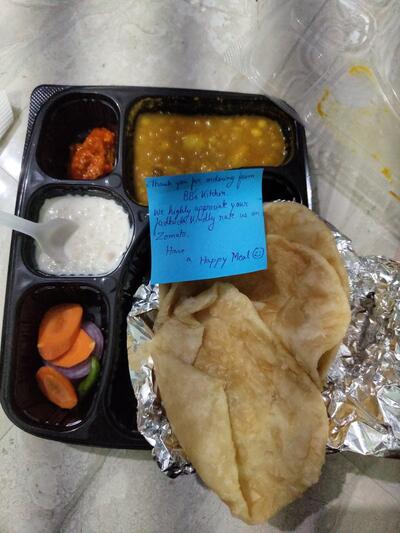 Thank you for ordering from
BBs Kitchn.
We highly appreciate your
feedback Kindly rate us on
Zomato.
Have
a Happy Meal